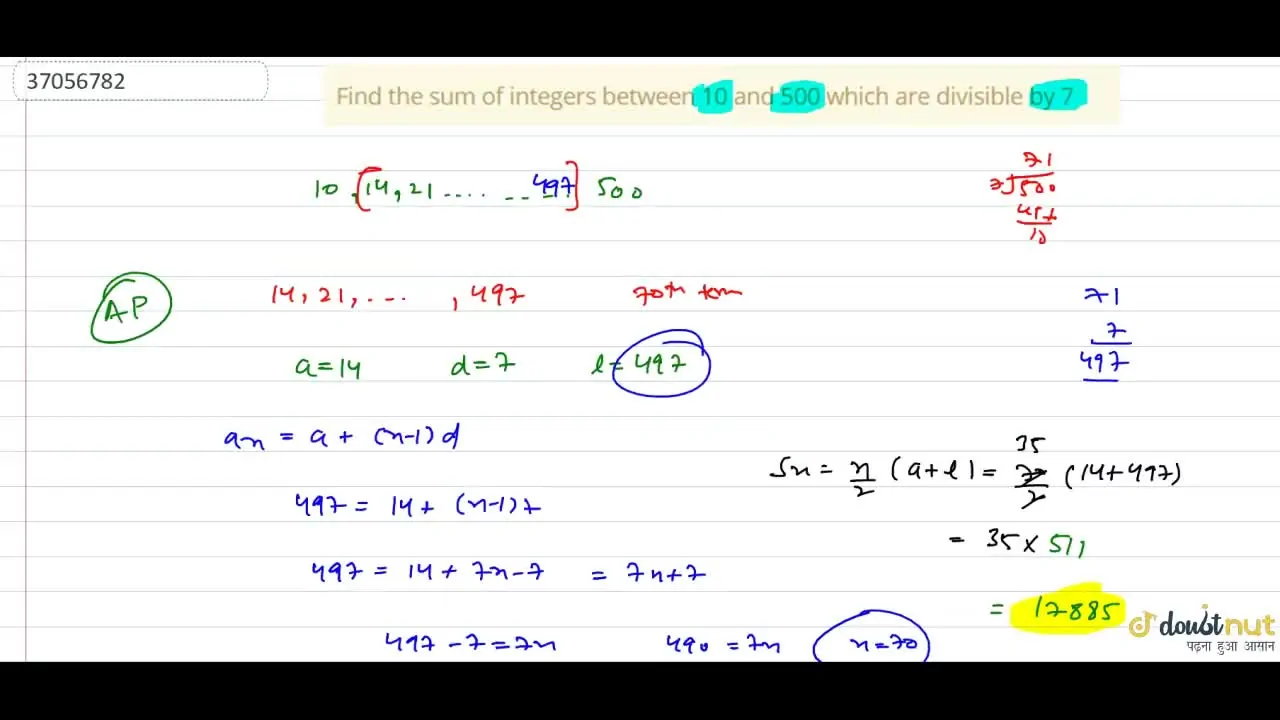 37056782
Find the sum of integers between 10 and 500 which are divisible by 7
10, [14, 21 ..... ... 497] 500
71
7)500
497
10
AP
14, 21, ... , 497 70th term
71
7
497
a=14 d=7 l=497
an = a + (n-1)d
497 = 14 + (n-1)7
497 = 14 + 7n-7 = 7n+7
497-7=7n 490=7n n=70
Sn = n/2 (a+l) = 70/2 (14+497)
35
= 35 x 511
= 17885
doubtnut
पढ़ना हुआ आसान